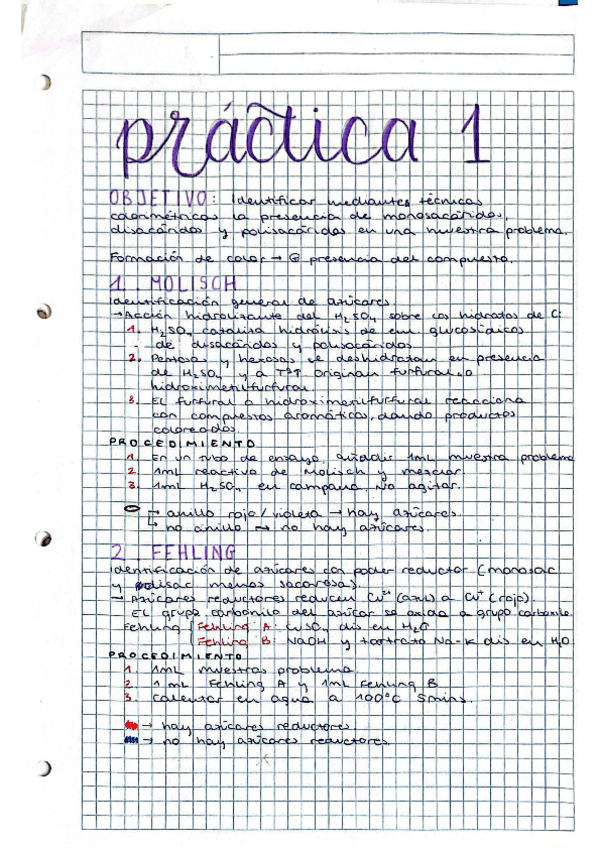 práctica 1
OBJETIVO: Identificar mediantes técnicas
colorimétricas la presencia de monosacáridos,
disacáridos y polisacáridos en una muestra problema.
Formación de color → presencia del compuesto.
1. MOLISCH
Identificación general de azúcares.
→ Acción hidrolizante del H₂SO₄ sobre los hidratos de C:
1. H₂SO₄ cataliza hidrólisis de enl glucosídicos
de disacáridos y polisacáridos
2. Pentosas y hexosas se deshidratan en presencia
de H₂SO₄ y a Tª↑ originan furfural o
hidroximetilfurfural.
3. El furfural o hidroximetilfurfural reacciona
con compuestos aromáticos, dando productos
coloreados.
PROCEDIMIENTO
1. En un tubo de ensayo, añadir 1mL muestra problema
2. 1mL reactivo de Molisch y mezclar.
3. 1mL H₂SO₄ en campana. No agitar.
anillo rojo/violeta → hay azúcares
no anillo → no hay azúcares.
2. FEHLING
Identificación de azúcares con poder reductor (monosac
y disac menos sacarosa).
→ Azúcares reductores reducen Cu²⁺ (azul) a Cu⁺ (rojo).
El grupo carbonilo del azúcar se oxida a grupo carboxilo.
Fehling Fehling A: CuSO₄ dis en H₂O
Fehling B: NaOH y tartrato Na-K dis en H₂O
PROCEDIMIENTO
1. 1mL muestras problema.
2. 1mL Fehling A y 1mL Fehling B
3. Calentar en agua a 100°C 5mins.
→ hay azúcares reductores.
→ no hay azúcares reductores.